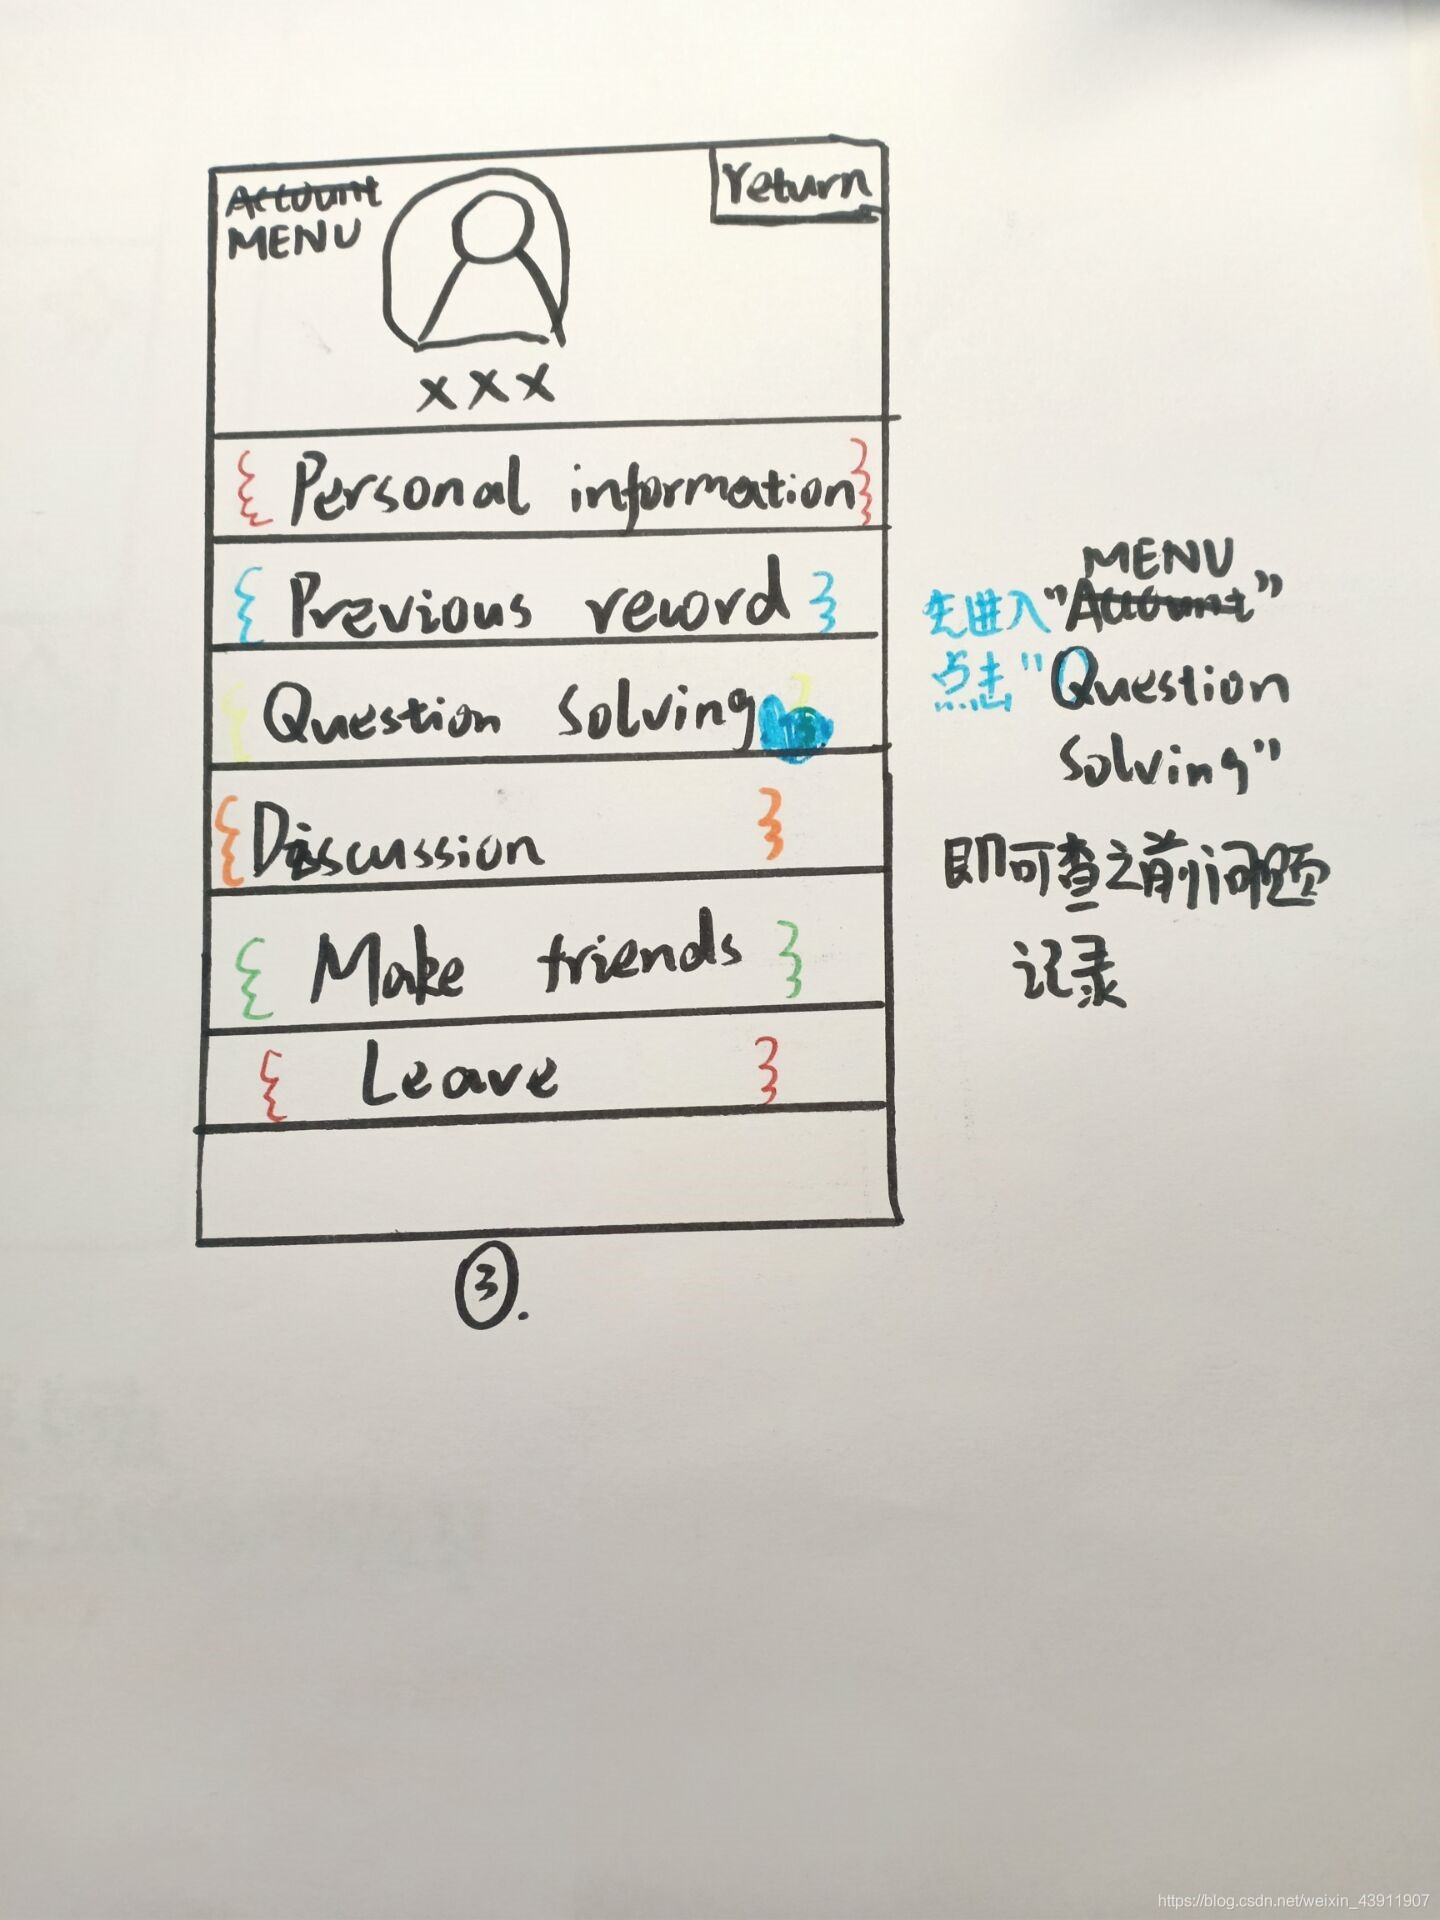 Account
MENU
return
XXX
Personal information
Previous record
Question Solving
Discussion
Make friends
Leave
③.
MENU
先进入"Account"
点击"Question
Solving"
即可查之前问题
记录
https://blog.csdn.net/weixin_43911907